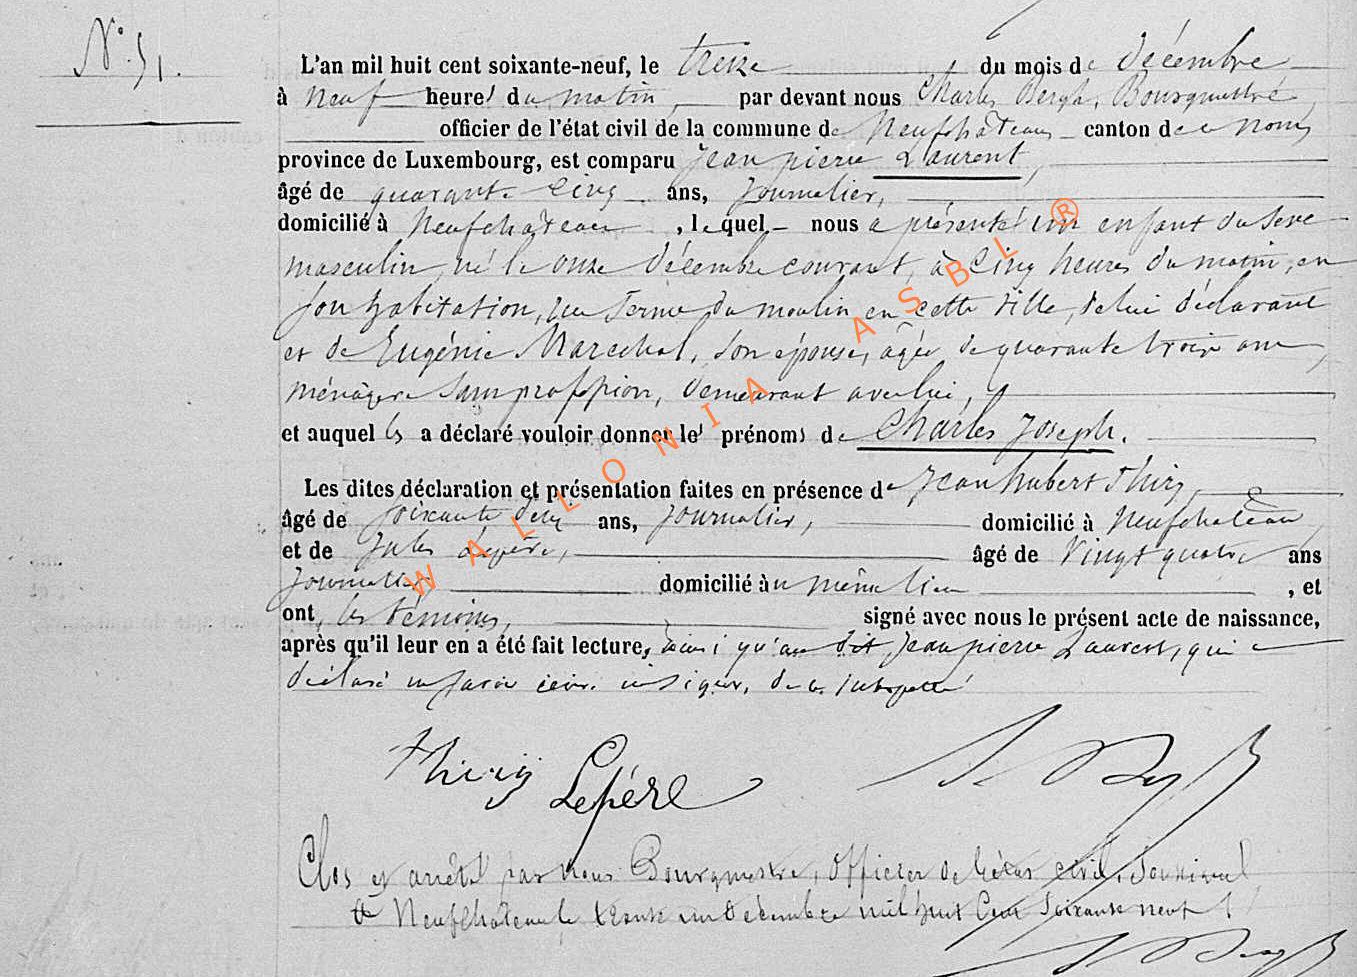 N° 51.
L'an mil huit cent soixante-neuf, le treize du mois de décembre
à neuf heures du matin, par devant nous Charles Bergh, Bourgmestre,
officier de l'état civil de la commune de Neufchâteau canton de ce nom,
province de Luxembourg, est comparu Jean pierre Laurent,
âgé de quarante cinq ans, Journalier,
domicilié à Neufchâteau, lequel nous a présenté un enfant du sexe
masculin, né le onze décembre courant, à cinq heures du matin, en
son habitation, du moulin en cette ville, de lui déclarant
et de Eugénie Marechal, son épouse, agée de quarante trois ans,
ménagère sans proffession, demeurant avec lui,
et auquel ils a déclaré vouloir donner les prénoms de Charles Joseph.
Les dites déclaration et présentation faites en présence de Jean hubert Thiry,
âgé de soixante deux ans, Journalier, domicilié à Neufchateau,
et de Jules Lepère, âgé de Vingt quatre ans
Journalier domicilié au même lieu, et
ont, les témoins, signé avec nous le présent acte de naissance,
après qu'il leur en a été fait lecture, ainsi qu'au dit Jean pierre Laurent, qui a
déclaré ne savoir signer, de ce interpellé
Thiry Lepère
Clos et arrêté par nous Bourgmestre, officier de l'état civil, soussigné
Neufchâteau le trente un décembre mil huit cent soixante neuf
WALLONIA ASBL ®